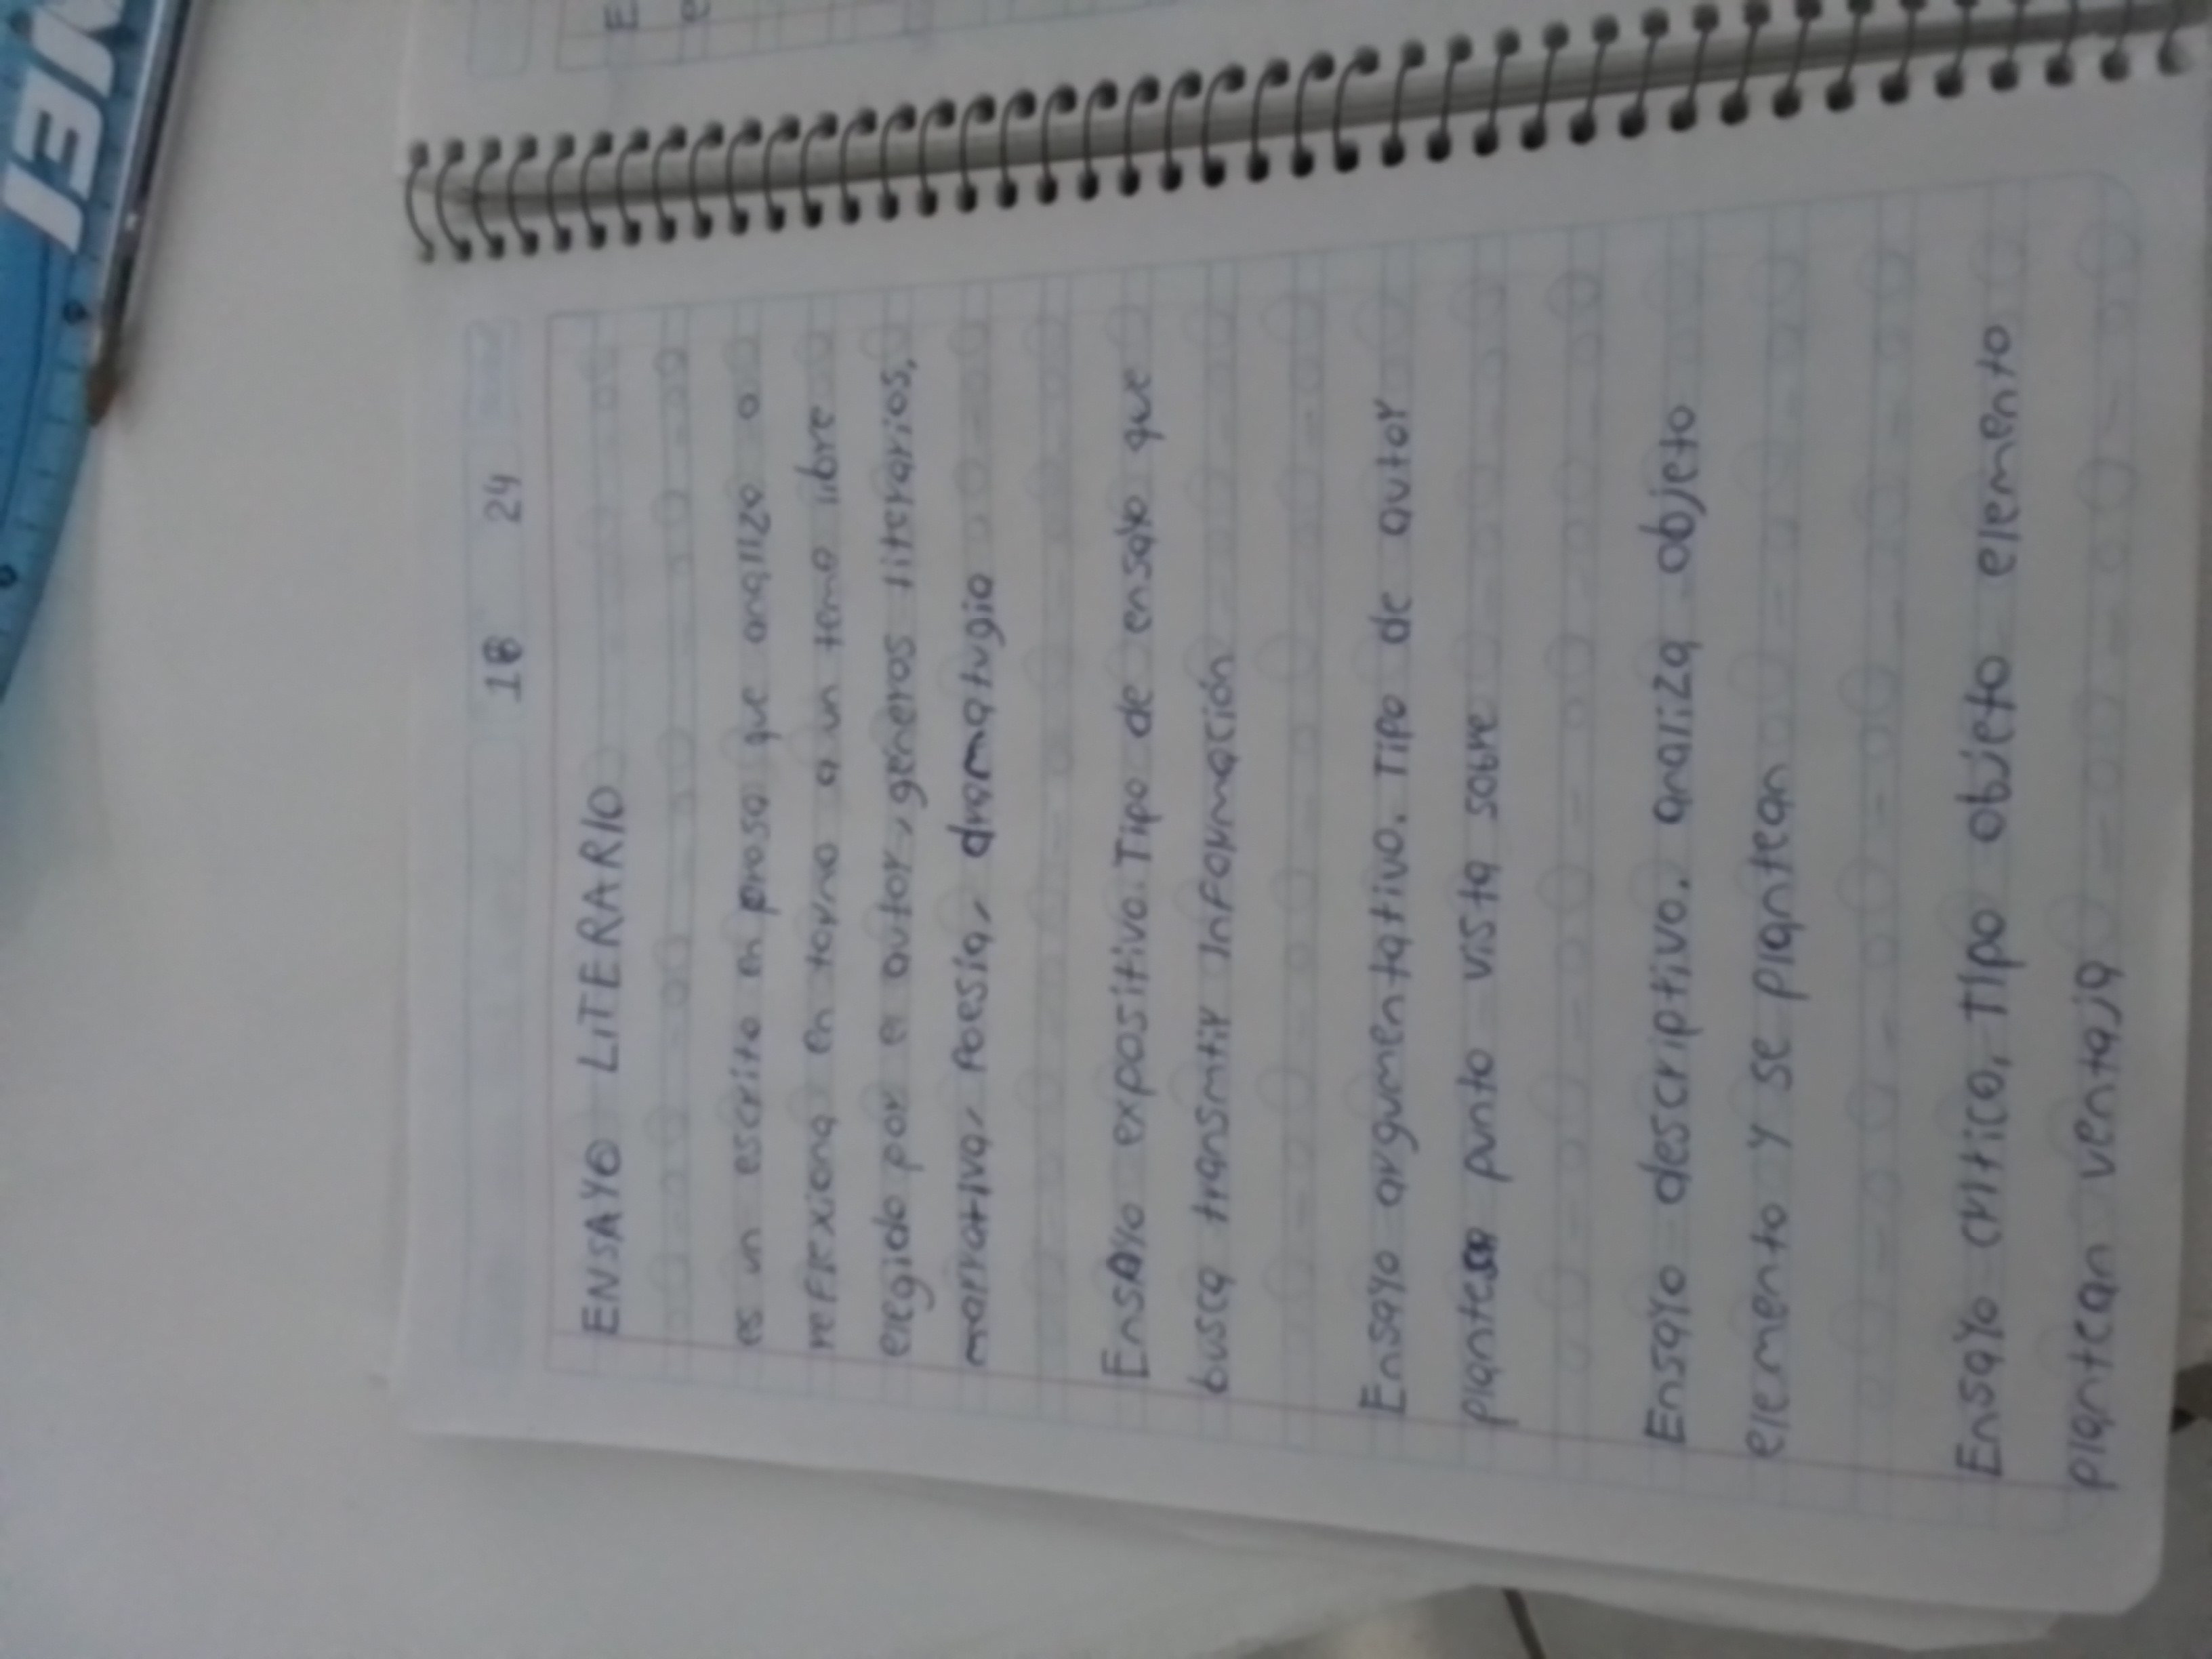 18 24
ENSAYO LITERARIO
es un escrito en prosa que analiza o
reflexiona en torno a un tema libre
elegido por el autor, géneros literarios,
marrativa, poesía, dramatugia
Ensayo expositivo. Tipo de ensayo que
busca transmitir información
Ensayo argumentativo. Tipo de autor
plantesa punto vista sobre
Ensayo descriptivo. analiza objeto
elemento y se plantean
Ensayo critico, Tipo objeto elemento
plantean ventaja